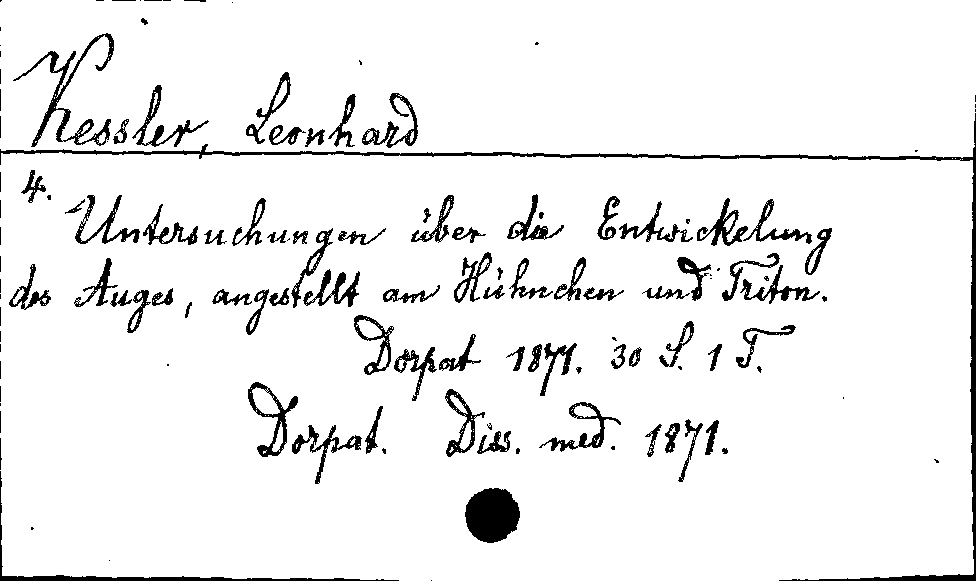 Kessler, Leonhard
4.
Untersuchungen über die Entwickelung
des Auges, angestellt am Hühnchen und Triton.
Dorpat 1871. 30 S. 1 T.
Dorpat. Diss. med. 1871.